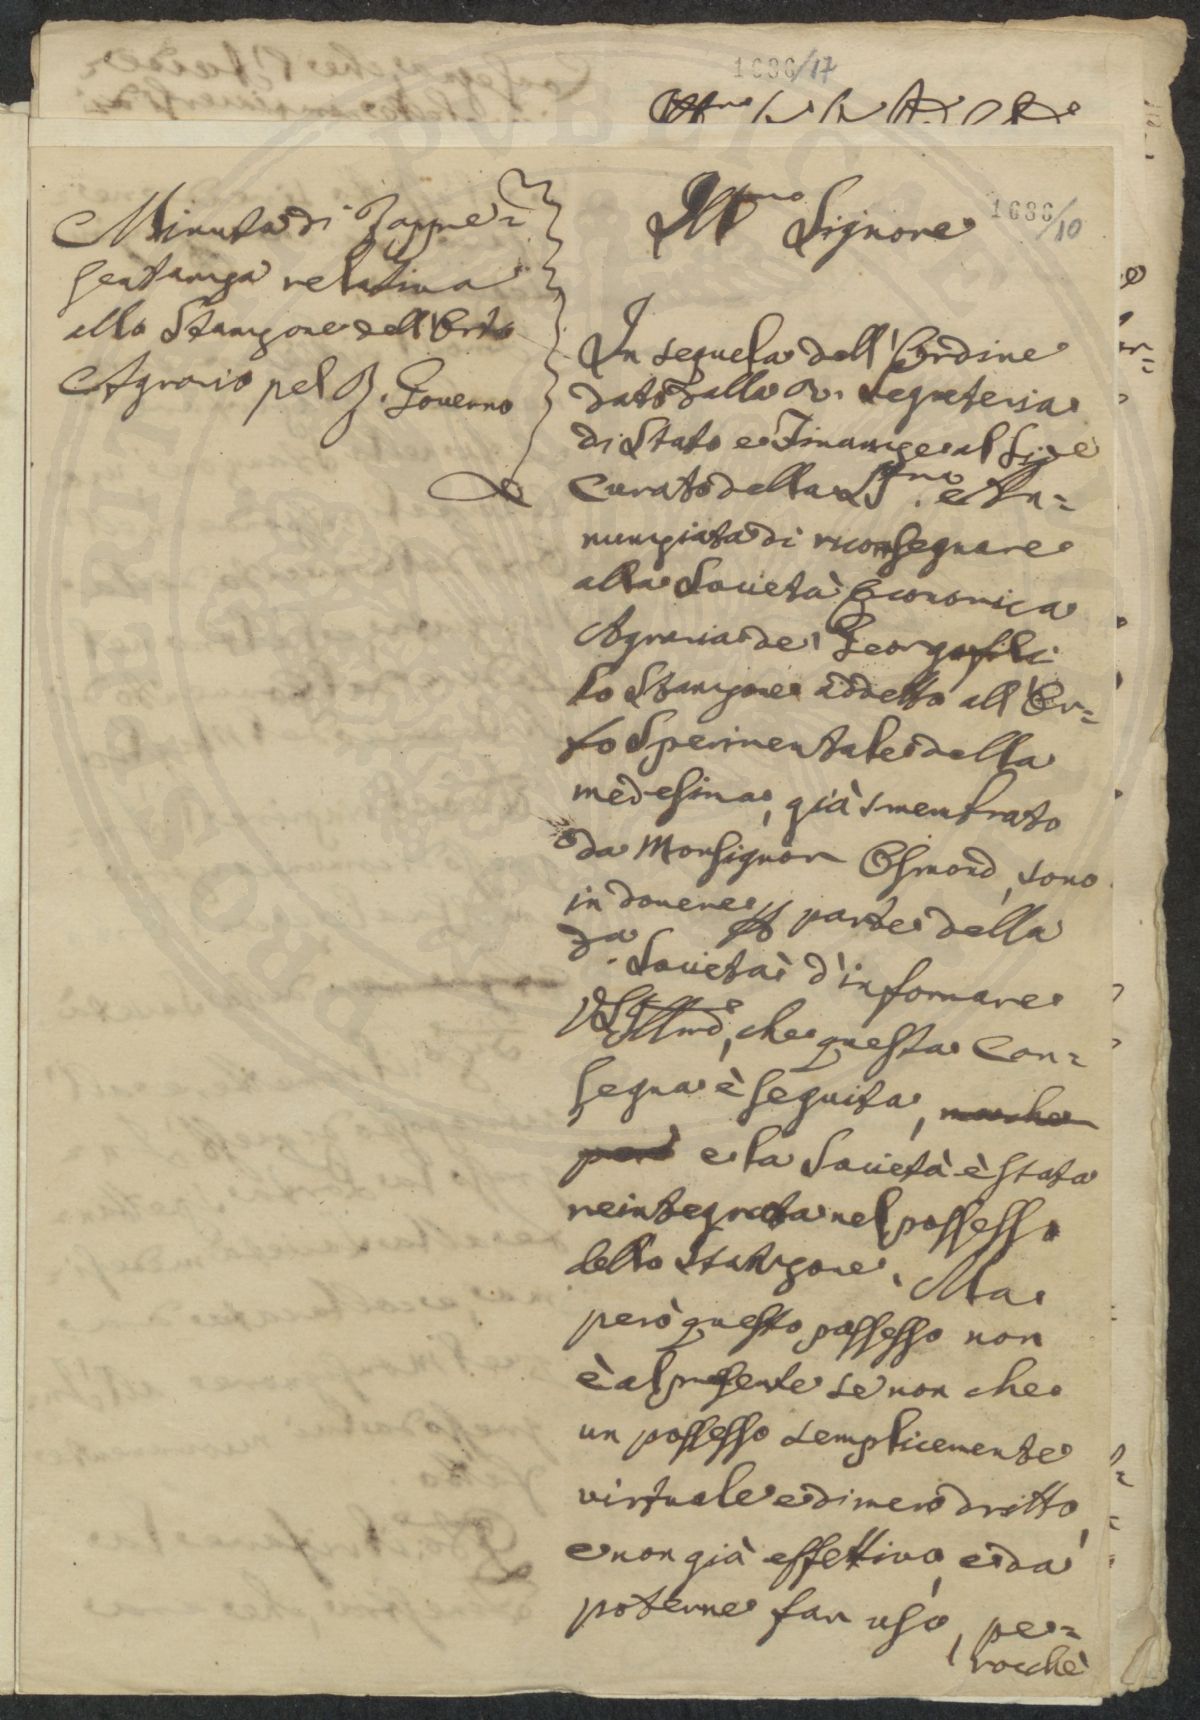 1686/17
Minuta di Rappre=
sentanza relativa
allo Stanzone dell'Orto
Agrario pel R. Governo
Ill.mo Signore
1686/10
In sequela dell'Ordine
dato dalla R. Segreteria
di Stato e Finanze al Sig.e
Curato della SS.ma An=
nunziata di riconsegnare
alla Società Economica
Agraria de' Georgofili
lo Stanzone addetto all'Or=
to Sperimentale della
medesima, già smembrato
da Monsignor Osmond, sono
in dovere parte della
d.a Società d'informare
VS Ill.ma, che questa Con=
segna è seguita, ma che
però e la Società è stata
reintegrata nel possesso
dello Stanzone. Ma
però questo possesso non
è al presente se non che
un possesso semplicemente
virtuale e di mero dritto,
e non già effettivo, e da
poterne far uso, pe=
rocchè